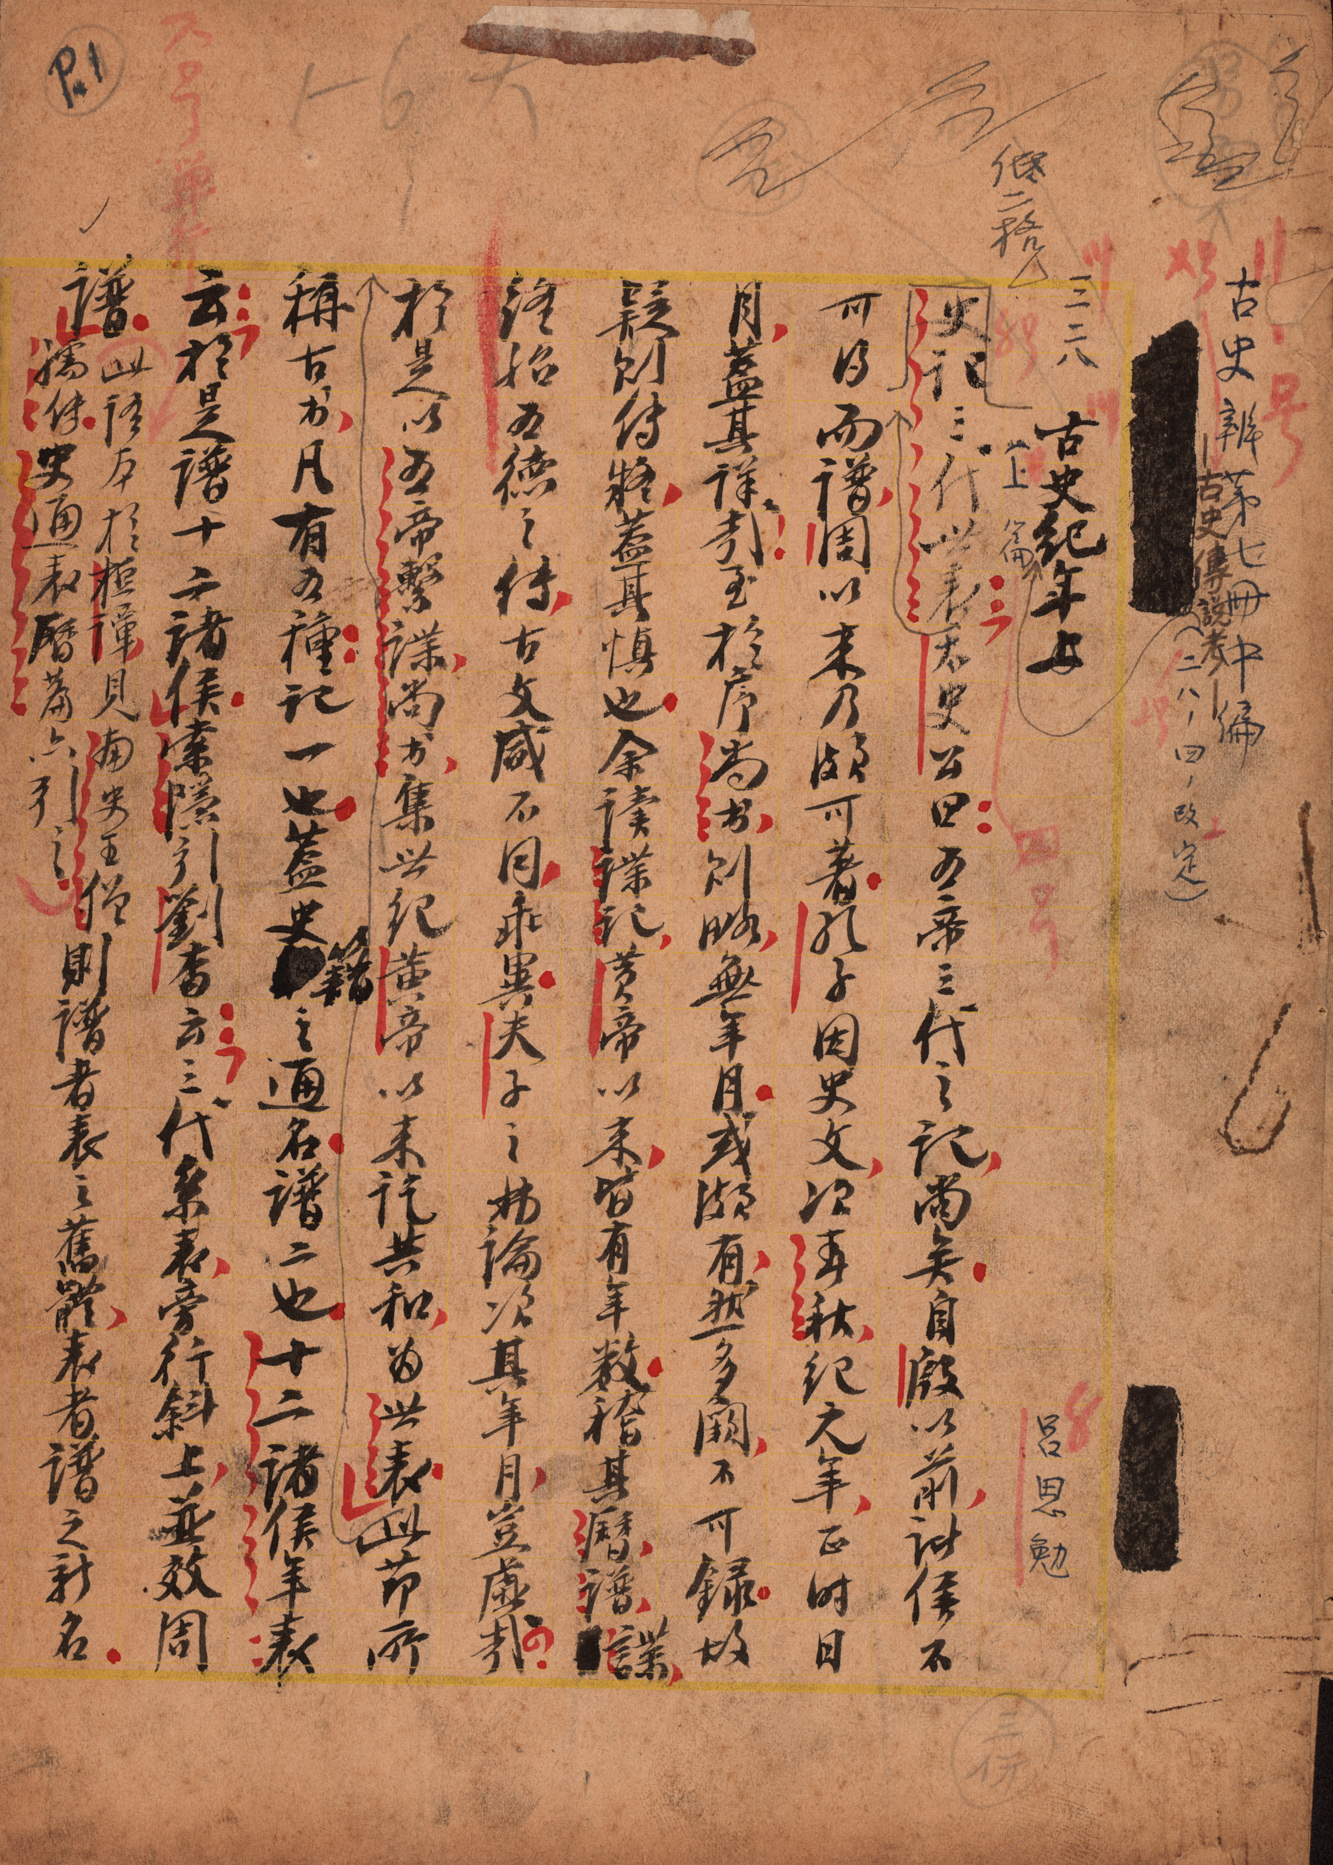 古史辨第七冊中編
古史傳說考
(二八、四、改定)
三二八 古史紀年上
上篇
呂思勉
低二格
史記三代世表太史公曰五帝三代之記尚矣自殷以前諸侯不
可得而譜周以來乃頗可著孔子因史文次春秋紀元年正時日
月蓋其詳哉至於序尚書則略無年月或頗有然多闕不可錄故
疑則傳疑蓋其慎也余讀諜記黃帝以來皆有年數稽其曆譜諜
終始五德之傳古文咸不同乖異夫子之弗論次其年月豈虛哉
於是以五帝繫諜尚書集世紀黃帝以來訖共和為世表此節所
稱古書凡有五種記一也蓋史籍之通名譜二也十二諸侯年表
云於是譜十二諸侯索隱引劉杳云三代系表旁行斜上並效周
譜此語本於桓譚見南史王僧
孺傳史通表曆篇亦引之
則譜者表之舊體表者譜之新名
P.1
六号單行
四号
三份